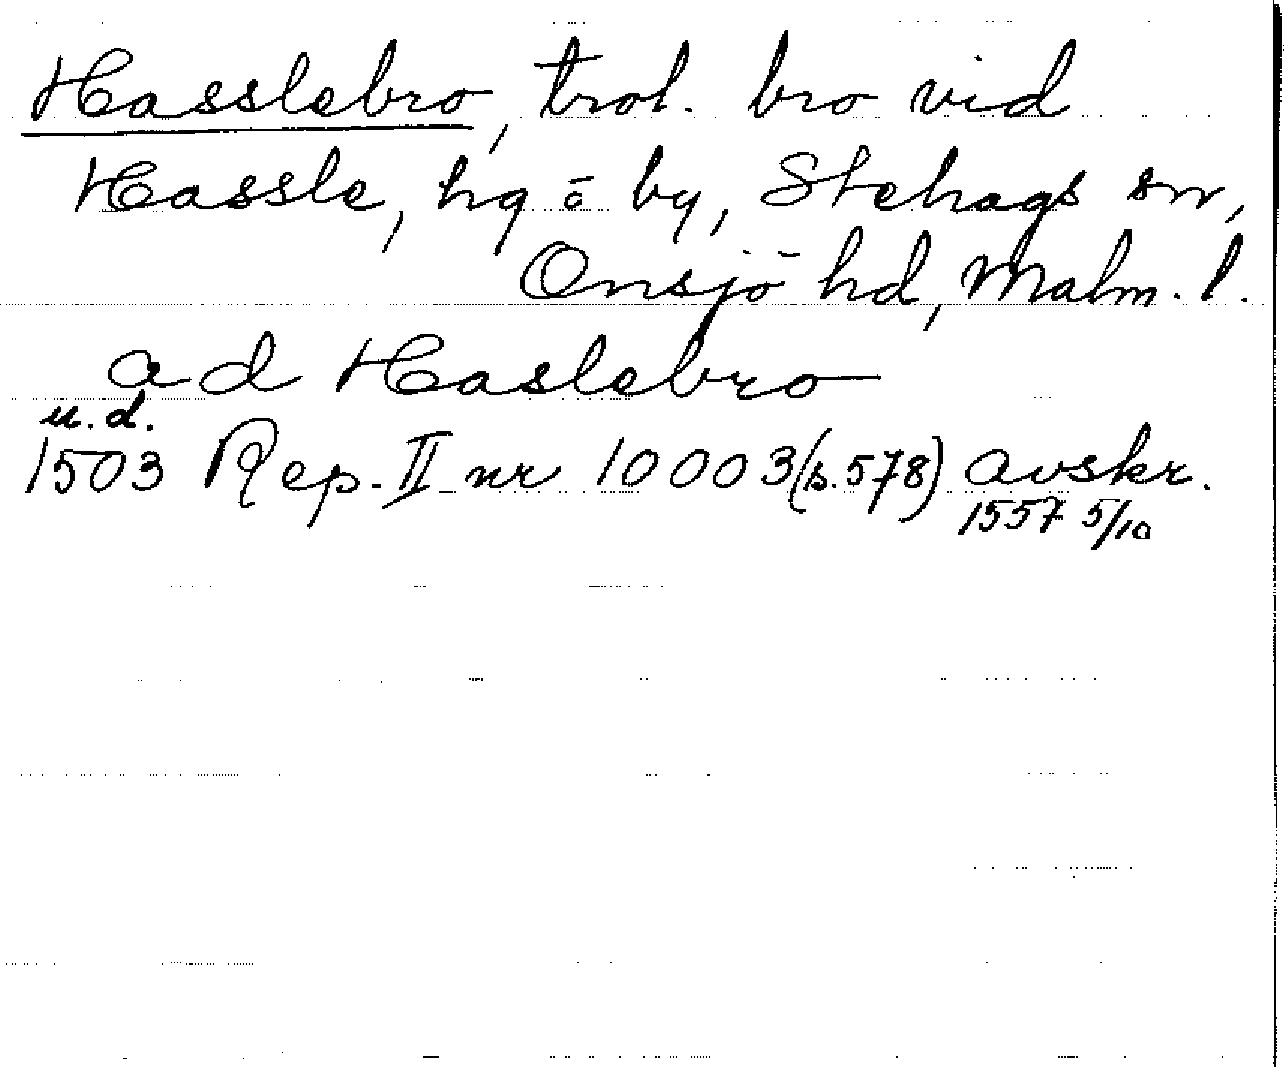 Hasslebro, trol. bro vid
Hassle, hg o by, Stehags sn,
Onsjö hd, Malm. l.
ad Haslebro
u.d.
1503 Rep. II nr 10003 (s. 578) avskr.
1557 5/10